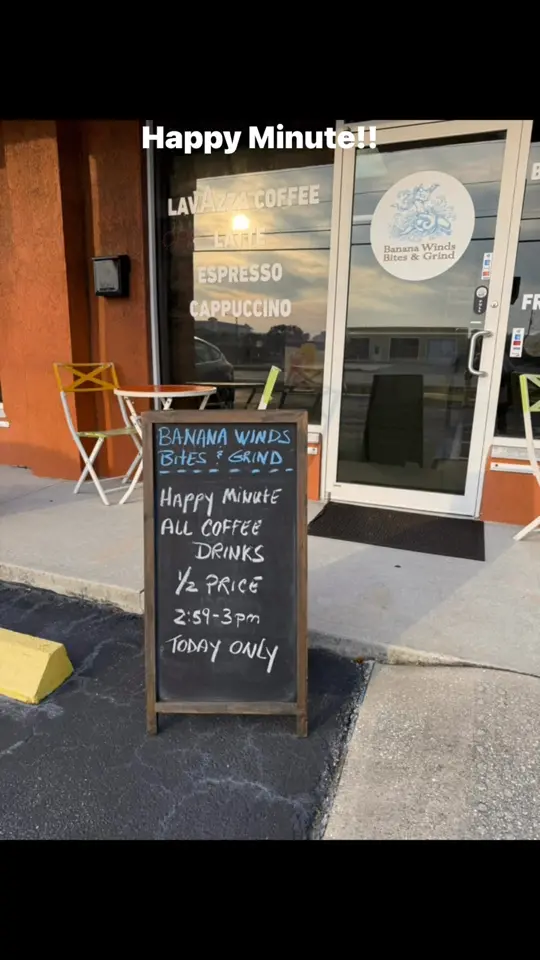 Happy Minute!!
LAVAZZA COFFEE
LATTE
ESPRESSO
CAPPUCCINO
Banana Winds
Bites & Grind
BANANA WINDS
BITES & GRIND
HAPPY MINUTE
ALL COFFEE
DRINKS
1/2 PRICE
2:59-3pm
TODAY ONLY